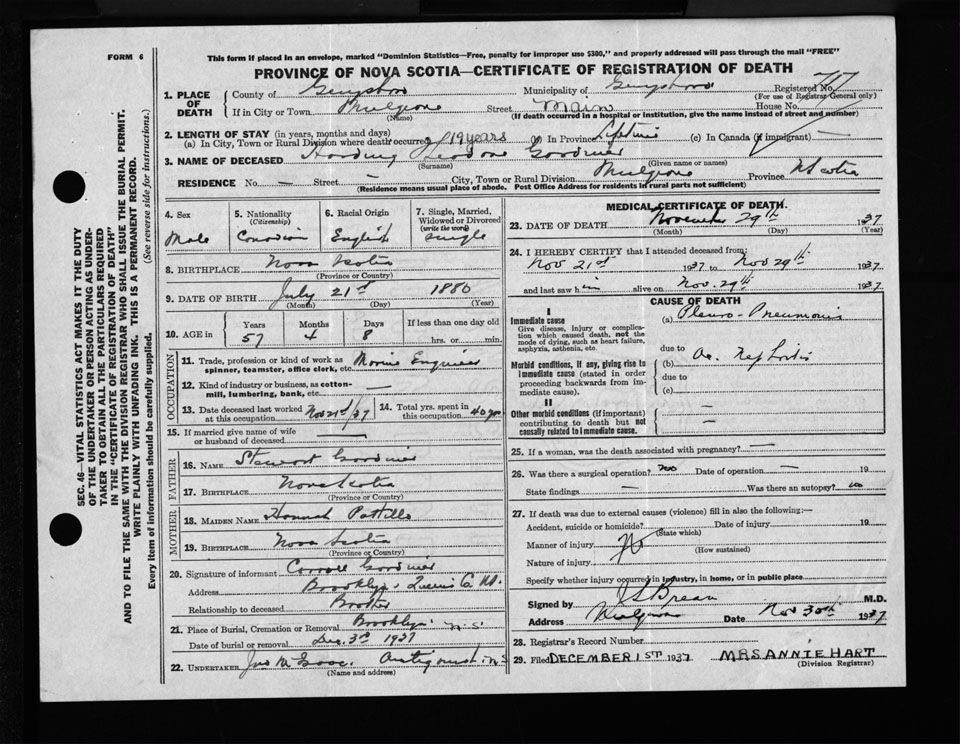 FORM 6
This form if placed in an envelope, marked "Dominion Statistics—Free, penalty for improper use $300," and properly addressed will pass through the mail "FREE"
PROVINCE OF NOVA SCOTIA—CERTIFICATE OF REGISTRATION OF DEATH
SEC. 46—VITAL STATISTICS ACT MAKES IT THE DUTY
OF THE UNDERTAKER OR PERSON ACTING AS UNDER-
TAKER TO OBTAIN ALL THE PARTICULARS REQUIRED
IN THE "CERTIFICATE OF REGISTRATION OF DEATH"
AND TO FILE THE SAME WITH THE DIVISION REGISTRAR WHO SHALL ISSUE THE BURIAL PERMIT.
WRITE PLAINLY WITH UNFADING INK. THIS IS A PERMANENT RECORD.
Every item of information should be carefully supplied. (See reverse side for instructions.)
1. PLACE OF DEATH
County of Guysboro Municipality of Guysboro Registered No.
(For use of Registrar General only)
If in City or Town Mulgrave Street Main House No.
(Name) (If death occurred in a hospital or institution, give the name instead of street and number)
2. LENGTH OF STAY (in years, months and days)
(a) In City, Town or Rural Division where death occurred 19 years (b) In Province Lifetime (c) In Canada (if immigrant) —
3. NAME OF DECEASED Harding Gardner
(Surname) (Given name or names)
RESIDENCE No. — Street — City, Town or Rural Division Mulgrave Province N Scotia
(Residence means usual place of abode. Post Office Address for residents in rural parts not sufficient)
4. Sex Male
5. Nationality (Citizenship) Canadian
6. Racial Origin English
7. Single, Married, Widowed or Divorced (write the word) Single
8. BIRTHPLACE Nova Scotia
(Province or Country)
9. DATE OF BIRTH July 21st 1880
(Month) (Day) (Year)
10. AGE in Years 57 Months 4 Days 8 If less than one day old hrs. or min.
OCCUPATION
11. Trade, profession or kind of work as spinner, teamster, office clerk, etc. Marine Engineer
12. Kind of industry or business, as cotton-mill, lumbering, bank, etc. —
13. Date deceased last worked at this occupation Nov 21st/37
14. Total yrs. spent in this occupation 40 yrs
15. If married give name of wife or husband of deceased —
FATHER
16. NAME Stewart Gardner
17. BIRTHPLACE Nova Scotia
(Province or Country)
MOTHER
18. MAIDEN NAME Hannah Pattillo
19. BIRTHPLACE Nova Scotia
(Province or Country)
20. Signature of informant Carroll Gardner
Address Brooklyn, Queens Co. N.S.
Relationship to deceased Brother
21. Place of Burial, Cremation or Removal Brooklyn N.S.
Date of burial or removal Dec. 3rd 1937
22. UNDERTAKER Antigonish N.S
(Name and address)
MEDICAL CERTIFICATE OF DEATH
23. DATE OF DEATH November 29th 1937
(Month) (Day) (Year)
24. I HEREBY CERTIFY that I attended deceased from:
Nov 21st 1937 to Nov 29th 1937
and last saw him alive on Nov. 29th 1937
CAUSE OF DEATH
I
Immediate cause
Give disease, injury or complication which caused death, not the mode of dying, such as heart failure, asphyxia, asthenia, etc.
(a) Pleuro-Pneumonia
due to
Morbid conditions, if any, giving rise to immediate cause (stated in order proceeding backwards from immediate cause).
(b) Ac. Nephritis
due to
(c)
II
Other morbid conditions (if important) contributing to death but not causally related to immediate cause.
—
—
25. If a woman, was the death associated with pregnancy? —
26. Was there a surgical operation? no Date of operation — 19
State findings — Was there an autopsy? no
27. If death was due to external causes (violence) fill in also the following:—
Accident, suicide or homicide? Date of injury 19
(State which)
Manner of injury No
(How sustained)
Nature of injury
Specify whether injury occurred in industry, in home, or in public place
Signed by M.D.
Address Mulgrave Date Nov 30th 1937
28. Registrar's Record Number
29. Filed DECEMBER 1ST 1937 MRS ANNIE HART
(Division Registrar)